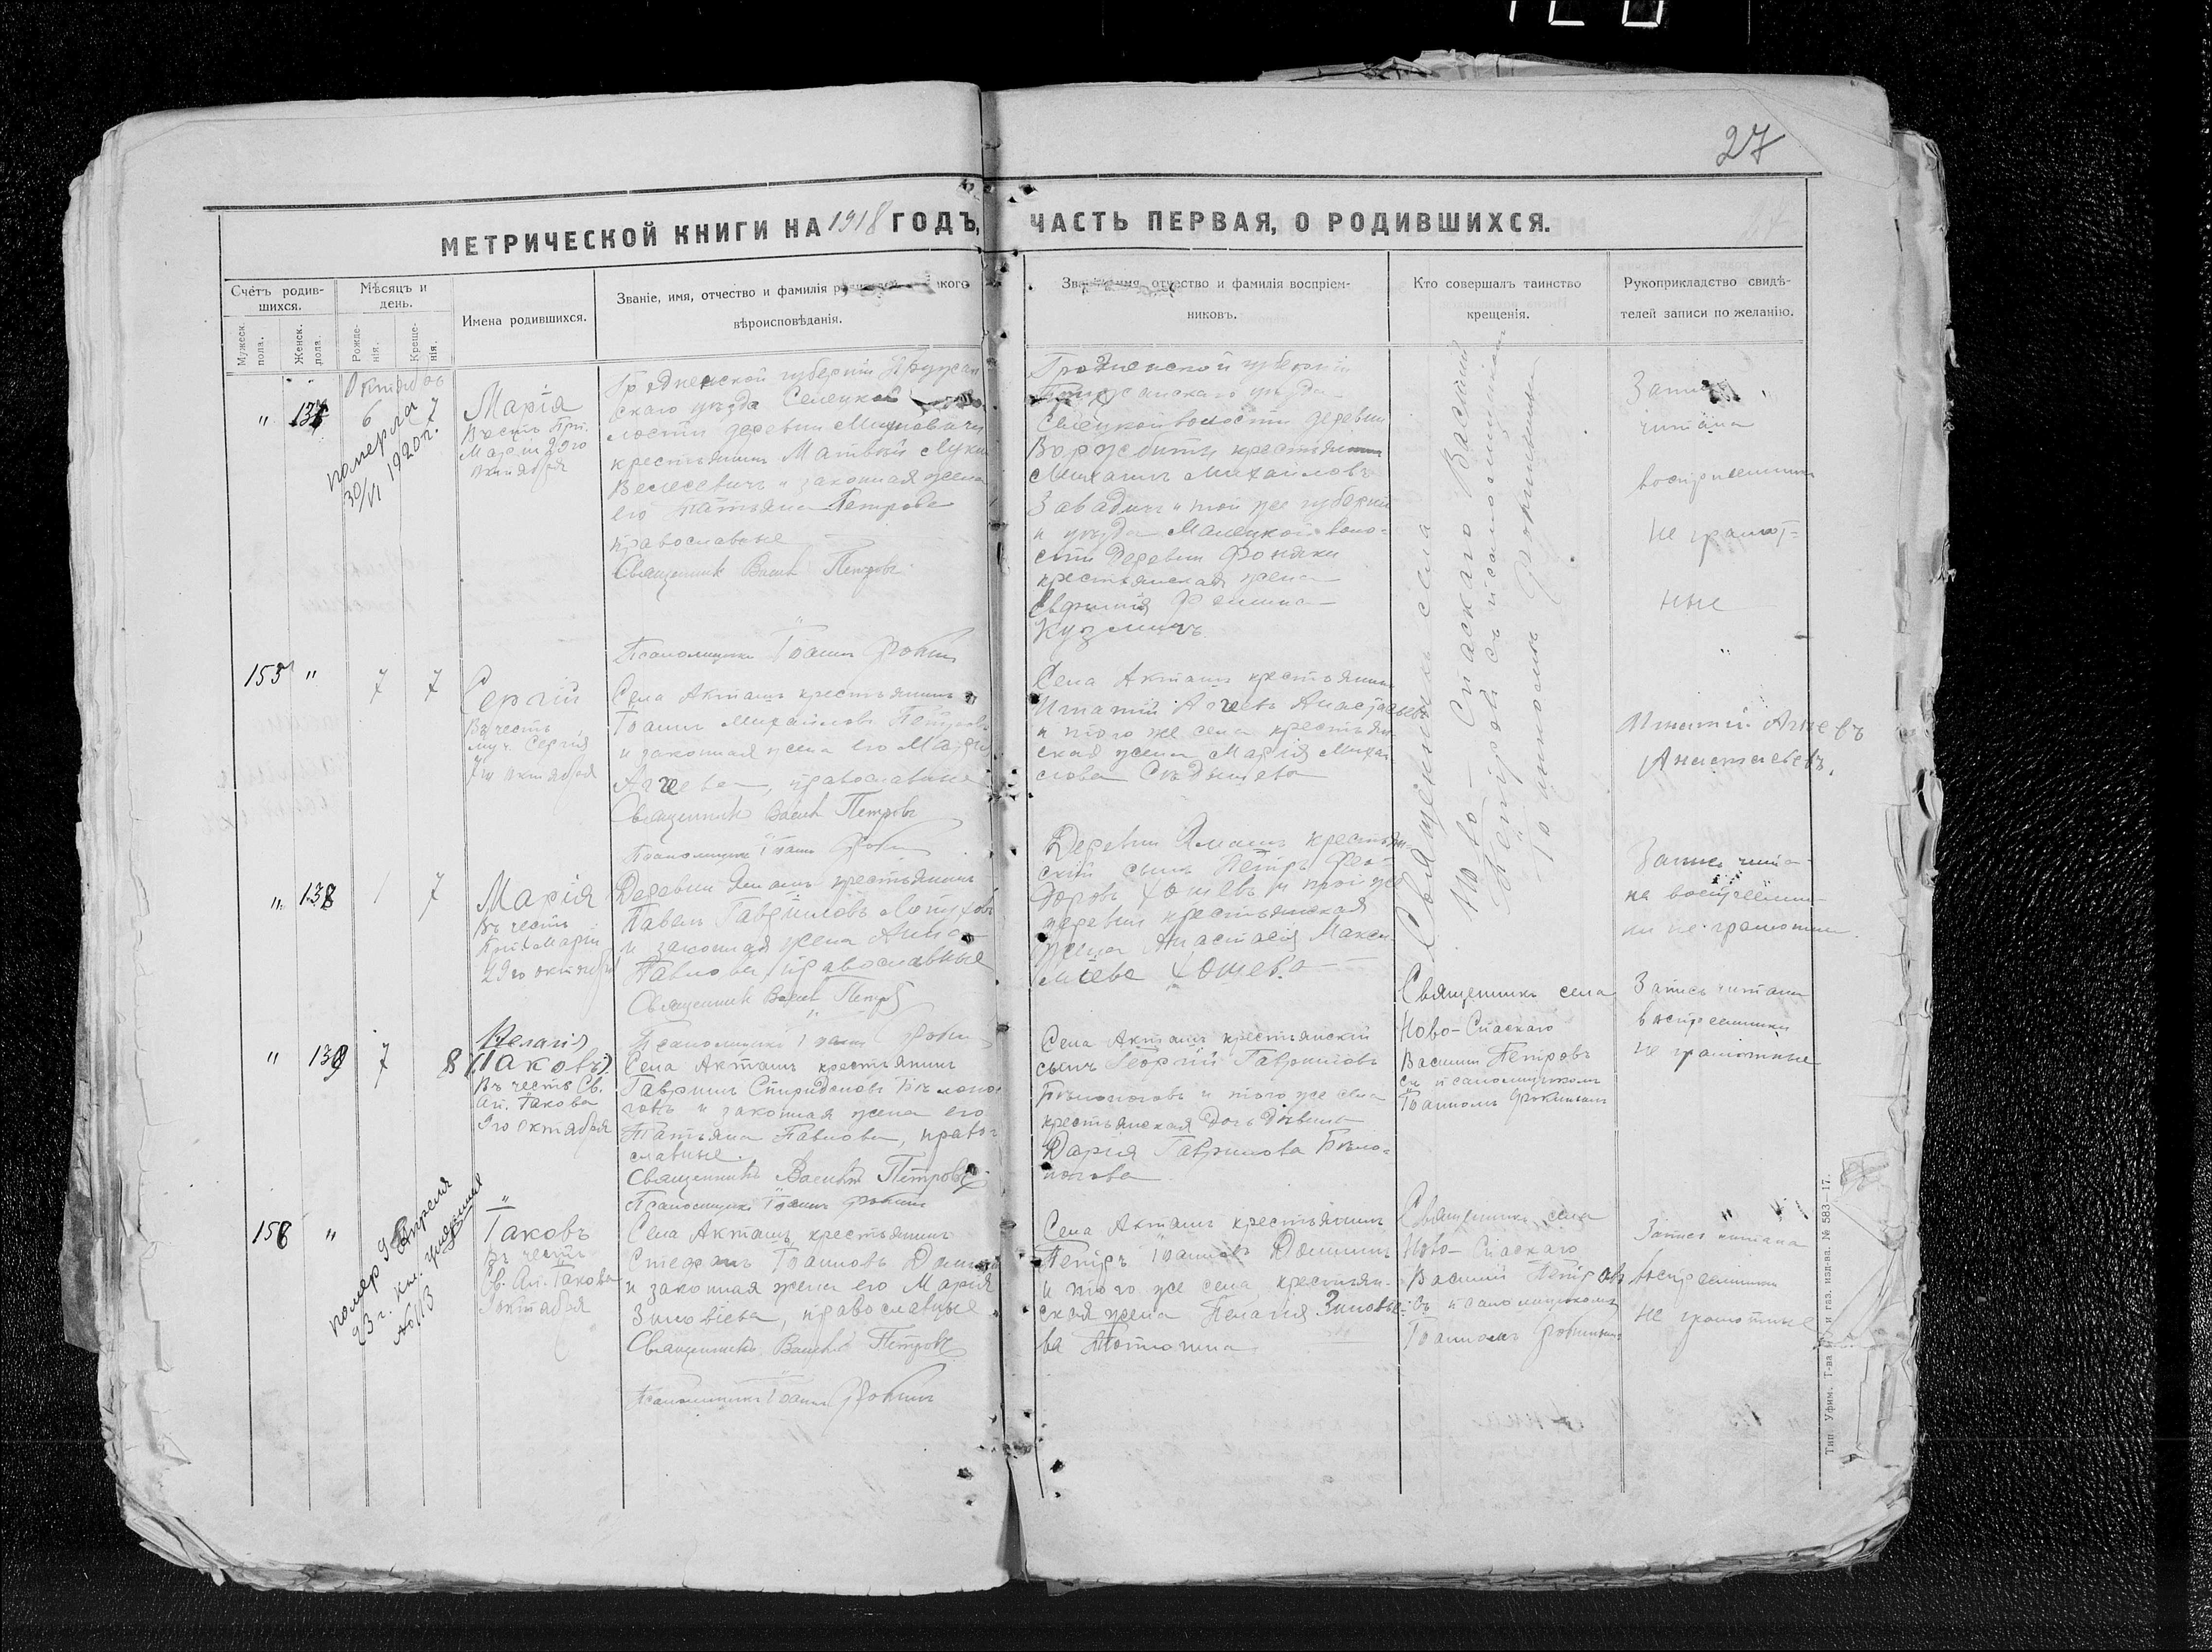 27
МЕТРИЧЕСКОЙ КНИГИ НА 1918 ГОДЪ, ЧАСТЬ ПЕРВАЯ, О РОДИВШИХСЯ.
Счетъ родив-
шихся.
Мужеск. пола.
Женск. пола.
Мѣсяцъ и
день.
Рожде-
нія.
Креще-
нія.
Имена родившихся.
Званіе, имя, отчество и фамилія
вѣроисповѣданія.
отчество и фамилія воспріем-
никовъ.
Кто совершалъ таинство
крещенія.
Рукоприкладство свидѣ-
телей записи по желанію.
Октябрь
" 137 6 7
померла
30/VI 1920 г.
Марія
Въ честь Прп.
Маріи 29го
октября
Гродненской губерніи Пружан
скаго уѣзда Селецкой
лости деревни
крестьянинъ Матвѣй Луки
и законная жена
его Татьяна Петрова
православные
Священникъ Васил Петровъ
Псаломщикъ Іоаннъ Фокинъ
Гродненской губерніи
Пружанскаго уѣзда
Селецкой волости деревни
крестьянинъ
Михаилъ Михайловъ
Завадичъ и той же губерніи
и уѣзда Малецкой воло-
сти деревни
крестьянская жена
Кузмичъ
Священникъ села
Ново-Спаскаго Василій
Петровъ съ псаломщикомъ
Іоанномъ Фокинымъ
читана
воспріемники
не грамот-
ные
153 " 7 7
Сергій
Въ честь
муч. Сергія
7го октября
Села Акташъ крестьянинъ
Іоаннъ Михайловъ
и законная жена его
православные
Священникъ Васил Петровъ
Псаломщикъ Іоаннъ Фокинъ
Села Акташъ крестьянинъ
Игнатій
и того же села крестьян
ская жена Марія Михаи
лова
Игнатій
" 138 1 7
Марія
Въ честь
Прп Маріи
29го октября
Деревни крестьянинъ
Павелъ Гавріиловъ
и законная жена Анна
Павлова, православные
Священникъ Васил Петров
Псаломщикъ Іоаннъ Фокин
Деревни крестьян-
скій сынъ Петръ Фео-
доровъ и той же
деревни крестьянская
жена Анастасія Макси-
Запись чита-
на воспріемни-
ки не грамотны.
" 139 7 8
Пелагія
(Іаковъ)
Въ честь Св.
Ап. Іакова
9го октября
Села Акташъ крестьянинъ
Гавріилъ Спиридоновъ Бѣлоно
говъ и законная жена его
Татьяна Павлова, право
славные.
Священникъ Васил Петровъ
Псаломщикъ Іоаннъ Фокинъ
Села Акташъ крестьянскій
сынъ Георгій Гавриловъ
Бѣлоноговъ и того же села
крестьянская дочь дѣвица
Дарія Гаврилова Бѣло-
ногова
Священникъ села
Ново-Спаскаго
Василій Петровъ
съ псаломщикомъ
Іоанномъ Фокинымъ
Запись читана
воспріемники
не грамотные
158 "
помер 9 Апреля
23 г.
Іаковъ
Въ честь
Св. Ап. Іакова
9 октября
Села Акташъ, крестьянинъ
Стефанъ Іоанновъ
и законная жена его Марія
Зиновіева, православные
Священникъ Васил Петров
Псаломщикъ Іоаннъ Фокинъ
Села Акташъ крестьянинъ
Петръ Іоанновъ
и того же села крестьян-
ская жена Пелагія Зиновье-
ва
Священникъ села
Ново-Спаскаго
Василій Петровъ
съ псаломщикомъ
Іоанномъ Фокинымъ
Запись читана
воспріемники
не грамотные
и газ. изд-ва. № 583—17.